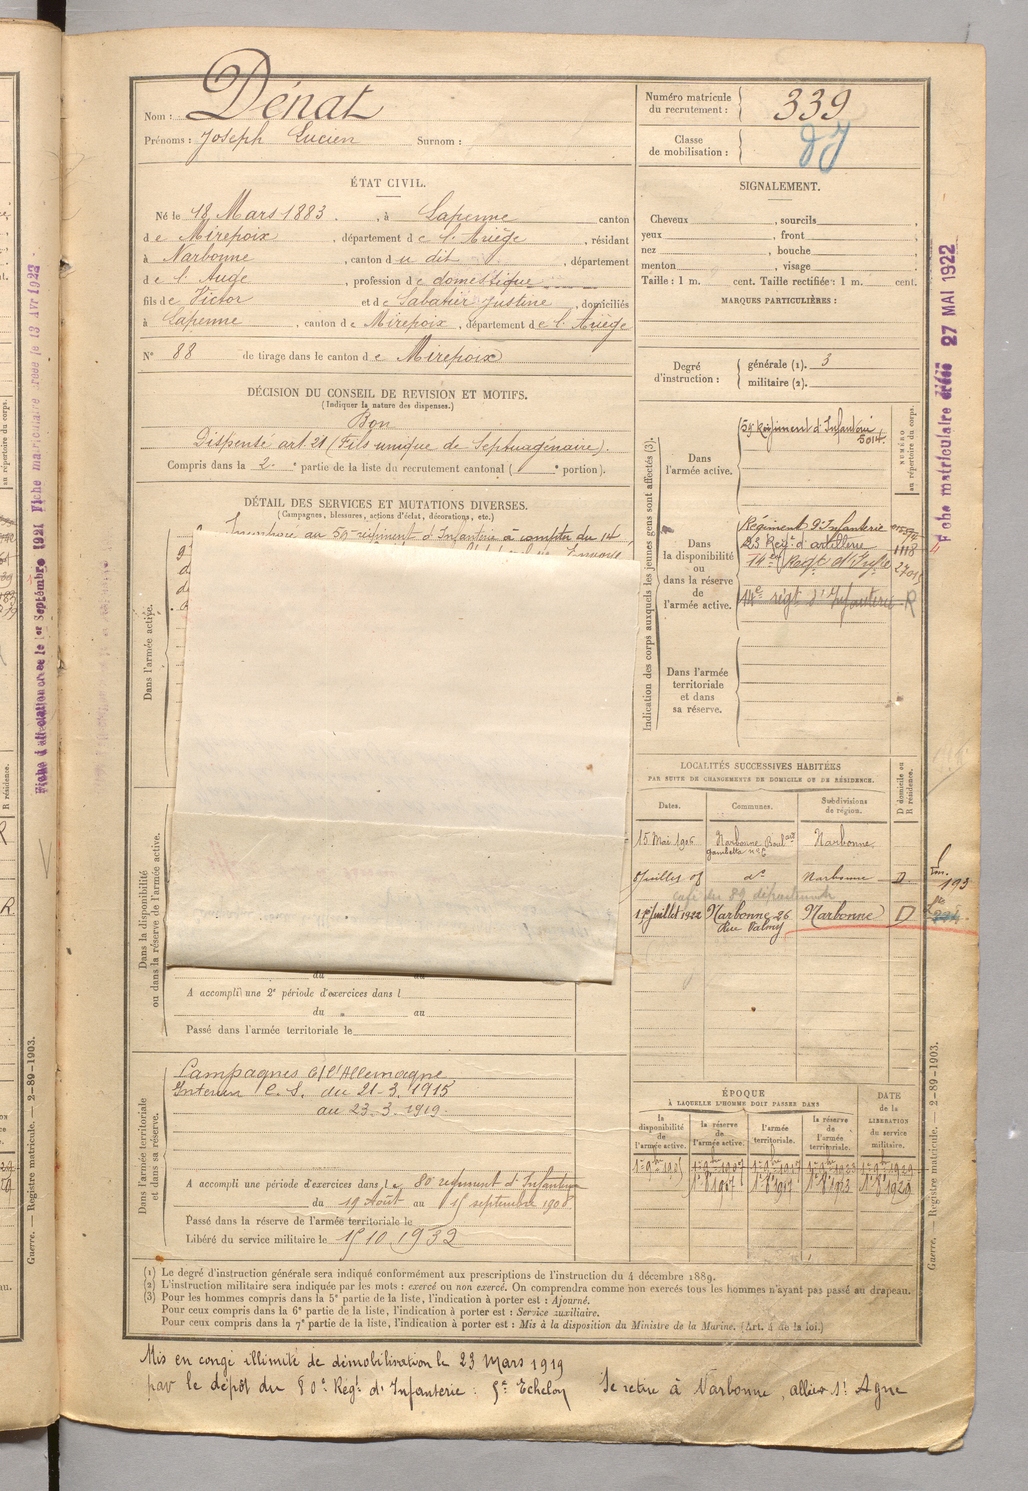 Nom : Dénat
Prénoms : Joseph Lucien Surnom :
Numéro matricule du recrutement : 339
Classe de mobilisation :
ÉTAT CIVIL.
Né le 18 Mars 1883. , à Lapenne canton
de Mirepoix , département de l'Ariège , résidant
à Narbonne , canton du dit , département
de l'Aude , profession de domestique
fils de Victor et de Sabatier Justine , domiciliés
à Lapenne , canton de Mirepoix , département de l'Ariège
N° 88 de tirage dans le canton de Mirepoix
DÉCISION DU CONSEIL DE REVISION ET MOTIFS.
(Indiquer la nature des dispenses.)
Bon
Dispensé art. 21 (Fils unique de Septuagénaire).
Compris dans la 2e partie de la liste du recrutement cantonal ( e portion).
DÉTAIL DES SERVICES ET MUTATIONS DIVERSES.
(Campagnes, blessures, actions d'éclat, décorations, etc.)
Incorporé au 59e régiment d'Infanterie à compter du 14
Dans l'armée active.
Dans la disponibilité
ou dans la réserve de l'armée active.
du au
A accompli une 2e période d'exercices dans l
du au
Passé dans l'armée territoriale le
Dans l'armée territoriale
et dans sa réserve.
Campagnes c/ l'Allemagne
Intérieur C. S. du 21-3-1915
au 23.3.1919.
A accompli une période d'exercices dans le 80 régiment d'Infanterie
du 19 Août au 15 septembre 1908
Passé dans la réserve de l'armée territoriale le
Libéré du service militaire le 15 10 1932
SIGNALEMENT.
Cheveux , sourcils ,
yeux , front ,
nez , bouche ,
menton , visage .
Taille : 1 m. cent. Taille rectifiée : 1 m. cent.
MARQUES PARTICULIÈRES :
Degré d'instruction :
générale (1). 3
militaire (2).
Indication des corps auxquels les jeunes gens sont affectés (3).
NUMÉRO
au répertoire du corps.
Dans l'armée active.
59 Régiment d'Infanterie
5014.
Dans la disponibilité ou dans la réserve de l'armée active.
Régiment d'Infanterie
23 Régt d'artillerie 1118
14e Régt d'Infie
14e régt d'Infanterie R
Dans l'armée territoriale et dans sa réserve.
LOCALITÉS SUCCESSIVES HABITÉES
PAR SUITE DE CHANGEMENTS DE DOMICILE OU DE RÉSIDENCE.
D domicile ou
R résidence.
Dates. Communes. Subdivisions de région.
15 Mai 1906 Narbonne Boulard Narbonne
Gambetta n° 26
8 Juillet 08 do Narbonne D
café des 89 départements
1er Juillet 1922 Narbonne 26 Narbonne D
Rue Valmy
193
ÉPOQUE
À LAQUELLE L'HOMME DOIT PASSER DANS
la disponibilité de l'armée active.
la réserve de l'armée active.
l'armée territoriale.
la réserve de l'armée territoriale.
DATE de la LIBÉRATION du service militaire.
(1) Le degré d'instruction générale sera indiqué conformément aux prescriptions de l'instruction du 4 décembre 1889.
(2) L'instruction militaire sera indiquée par les mots : exercé ou non exercé. On comprendra comme non exercés tous les hommes n'ayant pas passé au drapeau.
(3) Pour les hommes compris dans la 5e partie de la liste, l'indication à porter est : Ajourné.
Pour ceux compris dans la 6e partie de la liste, l'indication à porter est : Service auxiliaire.
Pour ceux compris dans la 7e partie de la liste, l'indication à porter est : Mis à la disposition du Ministre de la Marine. (Art. 4 de la loi.)
Mis en congé illimité de démobilisation le 23 Mars 1919
par le dépôt du 80e Régt d'Infanterie : 5e Echelon Se retire à Narbonne, allier St Agne
Fiche matriculaire 27 MAI 1922
Guerre. — Registre matricule. — 2-89-1903.
Fiche d'affectation créée le 1er Septembre 1921 Fiche matriculaire créée le 13 AVR 1922
Guerre. — Registre matricule. — 2-89-1903.